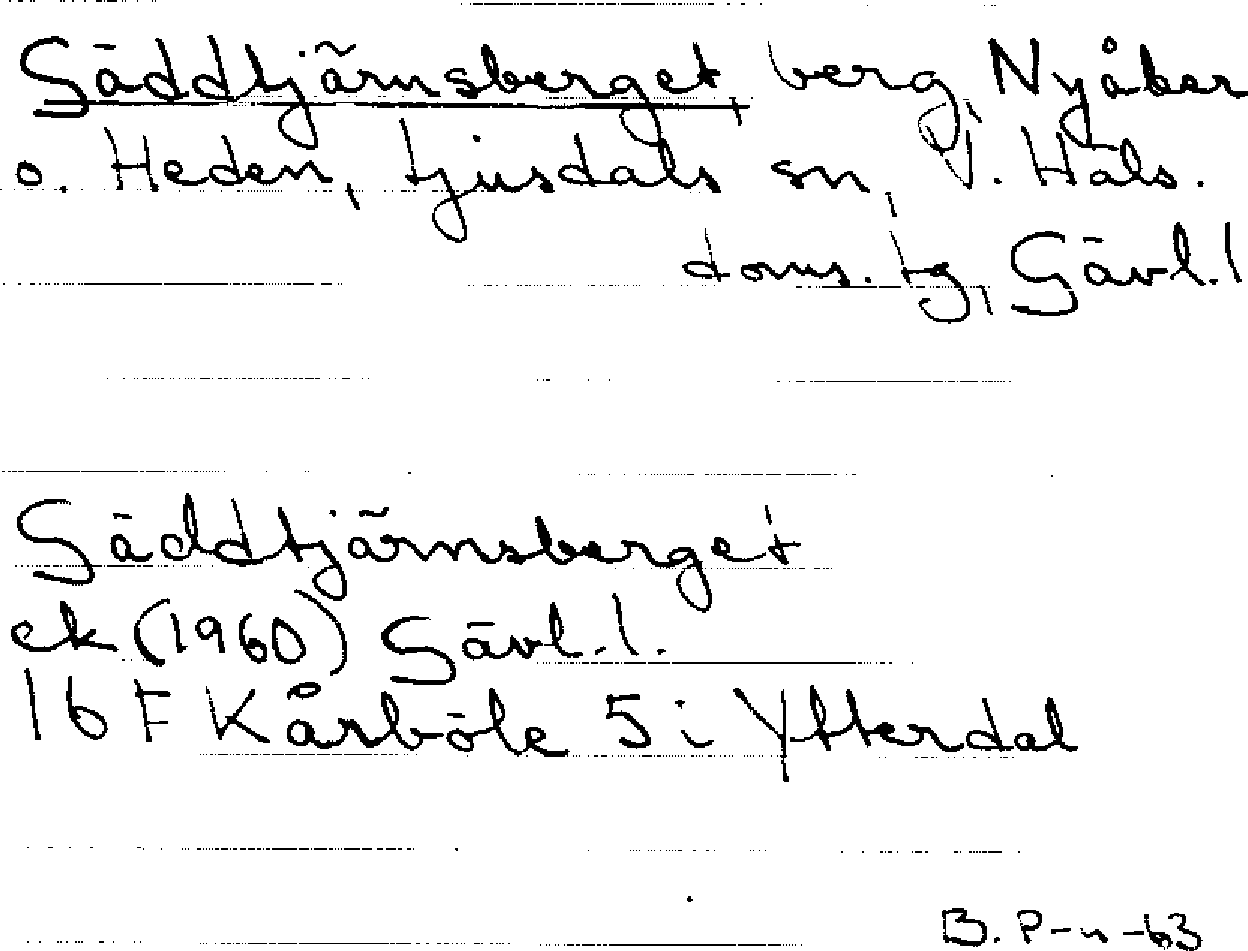 Gäddtjärnsberget, berg, Nyåker
o. Heden, Ljusdals sn, V. Häls.
doms. tg, Gävl. l
Gäddtjärnsberget
ek (1960) Gävl. l.
16 F Kårböle 5 i Ytterdal
B. P-n -63